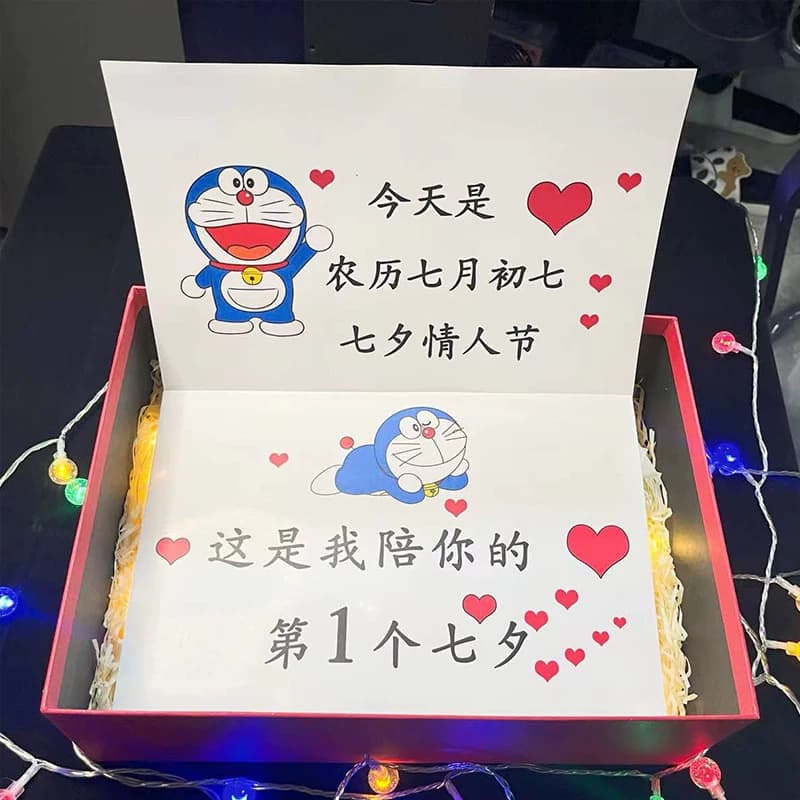 今天是
农历七月初七
七夕情人节
这是我陪你的
第1个七夕